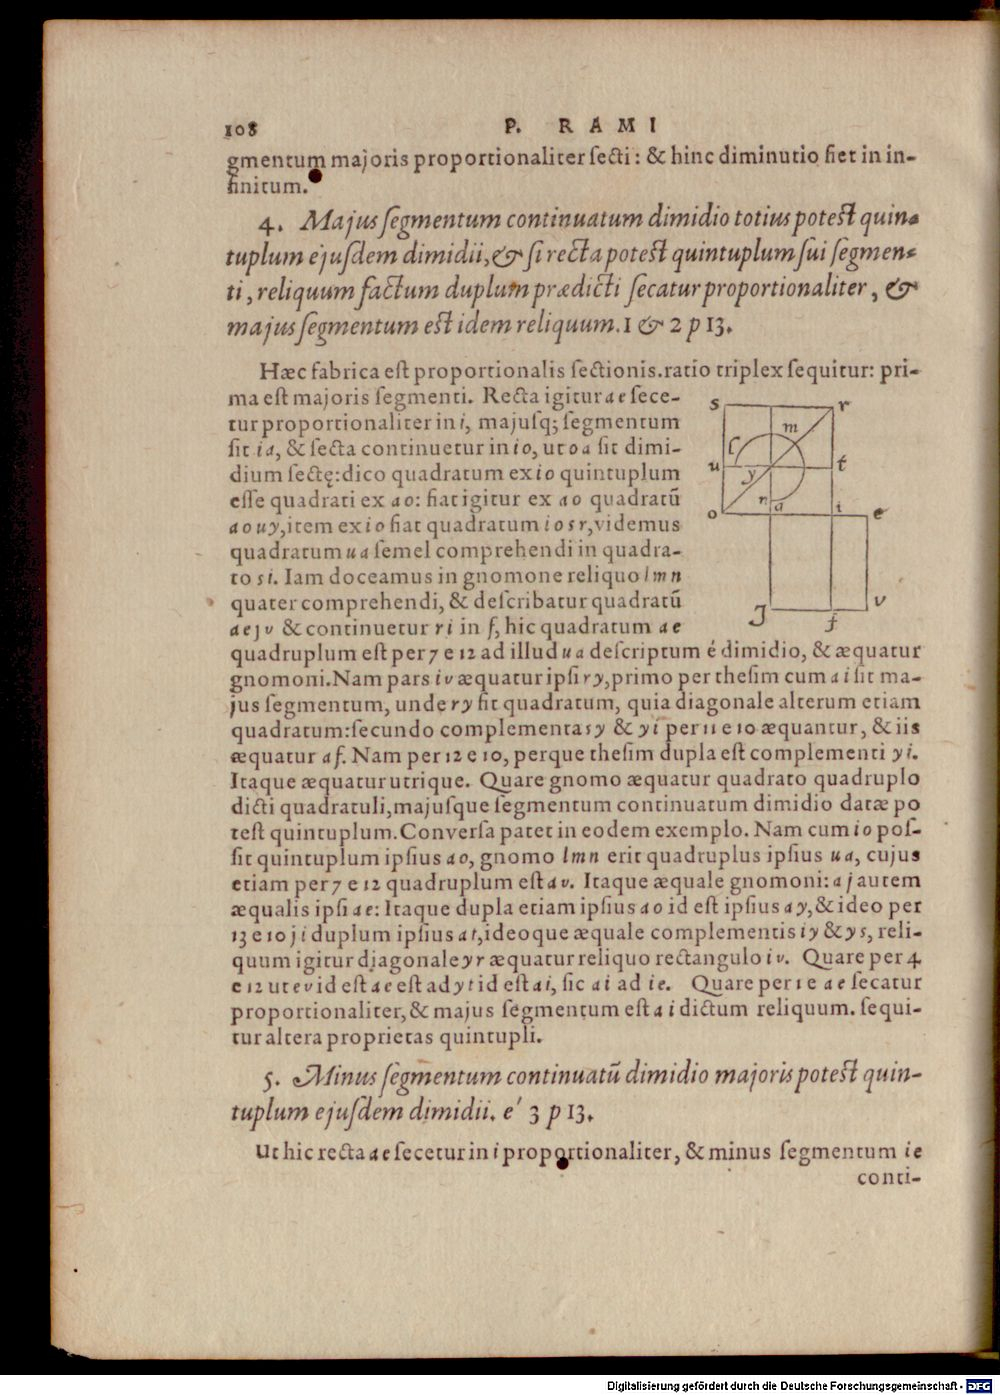 108 P. RAMI
gmentum majoris proportionaliter ſecti: & hinc diminutio fiet in in-
finitum.
4. Majus ſegmentum continuatum dimidio totius poteſt quin-
tuplum ejuſdem dimidii, & ſi recta poteſt quintuplum ſui ſegmen-
ti, reliquum factum duplum prædicti ſecatur proportionaliter, &
majus ſegmentum eſt idem reliquum. 1 & 2 p 13.
Hæc fabrica eſt proportionalis ſectionis. ratio triplex ſequitur: pri-
ma eſt majoris ſegmenti. Recta igitur a e ſece-
tur proportionaliter in i, majuſq; ſegmentum
ſit i a, & ſecta continuetur in i o, ut o a ſit dimi-
dium ſectę: dico quadratum ex i o quintuplum
eſſe quadrati ex a o: fiat igitur ex a o quadratũ
a o u y, item ex i o fiat quadratum i o s r, videmus
quadratum u a ſemel comprehendi in quadra-
to s i. Iam doceamus in gnomone reliquo l m n
quater comprehendi, & deſcribatur quadratũ
a e j v & continuetur r i in ſ, hic quadratum a e
quadruplum eſt per 7 e 12 ad illud u a deſcriptum é dimidio, & æquatur
gnomoni. Nam pars i v æquatur ipſi r y, primo per theſim cum a i ſit ma-
jus ſegmentum, undę r y ſit quadratum, quia diagonale alterum etiam
quadratum: ſecundo complementa s y & y i per 11 e 10 æquantur, & iis
æquatur a ſ. Nam per 12 e 10, perque theſim dupla eſt complementi y i.
Itaque æquatur utrique. Quare gnomo æquatur quadrato quadruplo
dicti quadratuli, majuſque ſegmentum continuatum dimidio datæ po
teſt quintuplum. Converſa patet in eodem exemplo. Nam cum i o poſ-
ſit quintuplum ipſius a o, gnomo l m n erit quadruplus ipſius u a, cujus
etiam per 7 e 12 quadruplum eſt a v. Itaque æquale gnomoni: a j autem
æqualis ipſi a e: Itaque dupla etiam ipſius a o id eſt ipſius a y, & ideo per
13 e 10 j i duplum ipſius a t, ideoque æquale complementis i y & y s, reli-
quum igitur diagonale y r æquatur reliquo rectangulo i v. Quare per 4
e 12 ut e v id eſt a e eſt ad y t id eſt a i, ſic a i ad i e. Quare per 1 e a e ſecatur
proportionaliter, & majus ſegmentum eſt a i dictum reliquum. ſequi-
tur altera proprietas quintupli.
s r
m
l
u y t
n
o a i e
J ſ v
5. Minus ſegmentum continuatũ dimidio majoris poteſt quin-
tuplum ejuſdem dimidii. e' 3 p 13.
Ut hic recta a e ſecetur in i proportionaliter, & minus ſegmentum i e
conti-
Digitalisierung gefördert durch die Deutsche Forschungsgemeinschaft - DFG